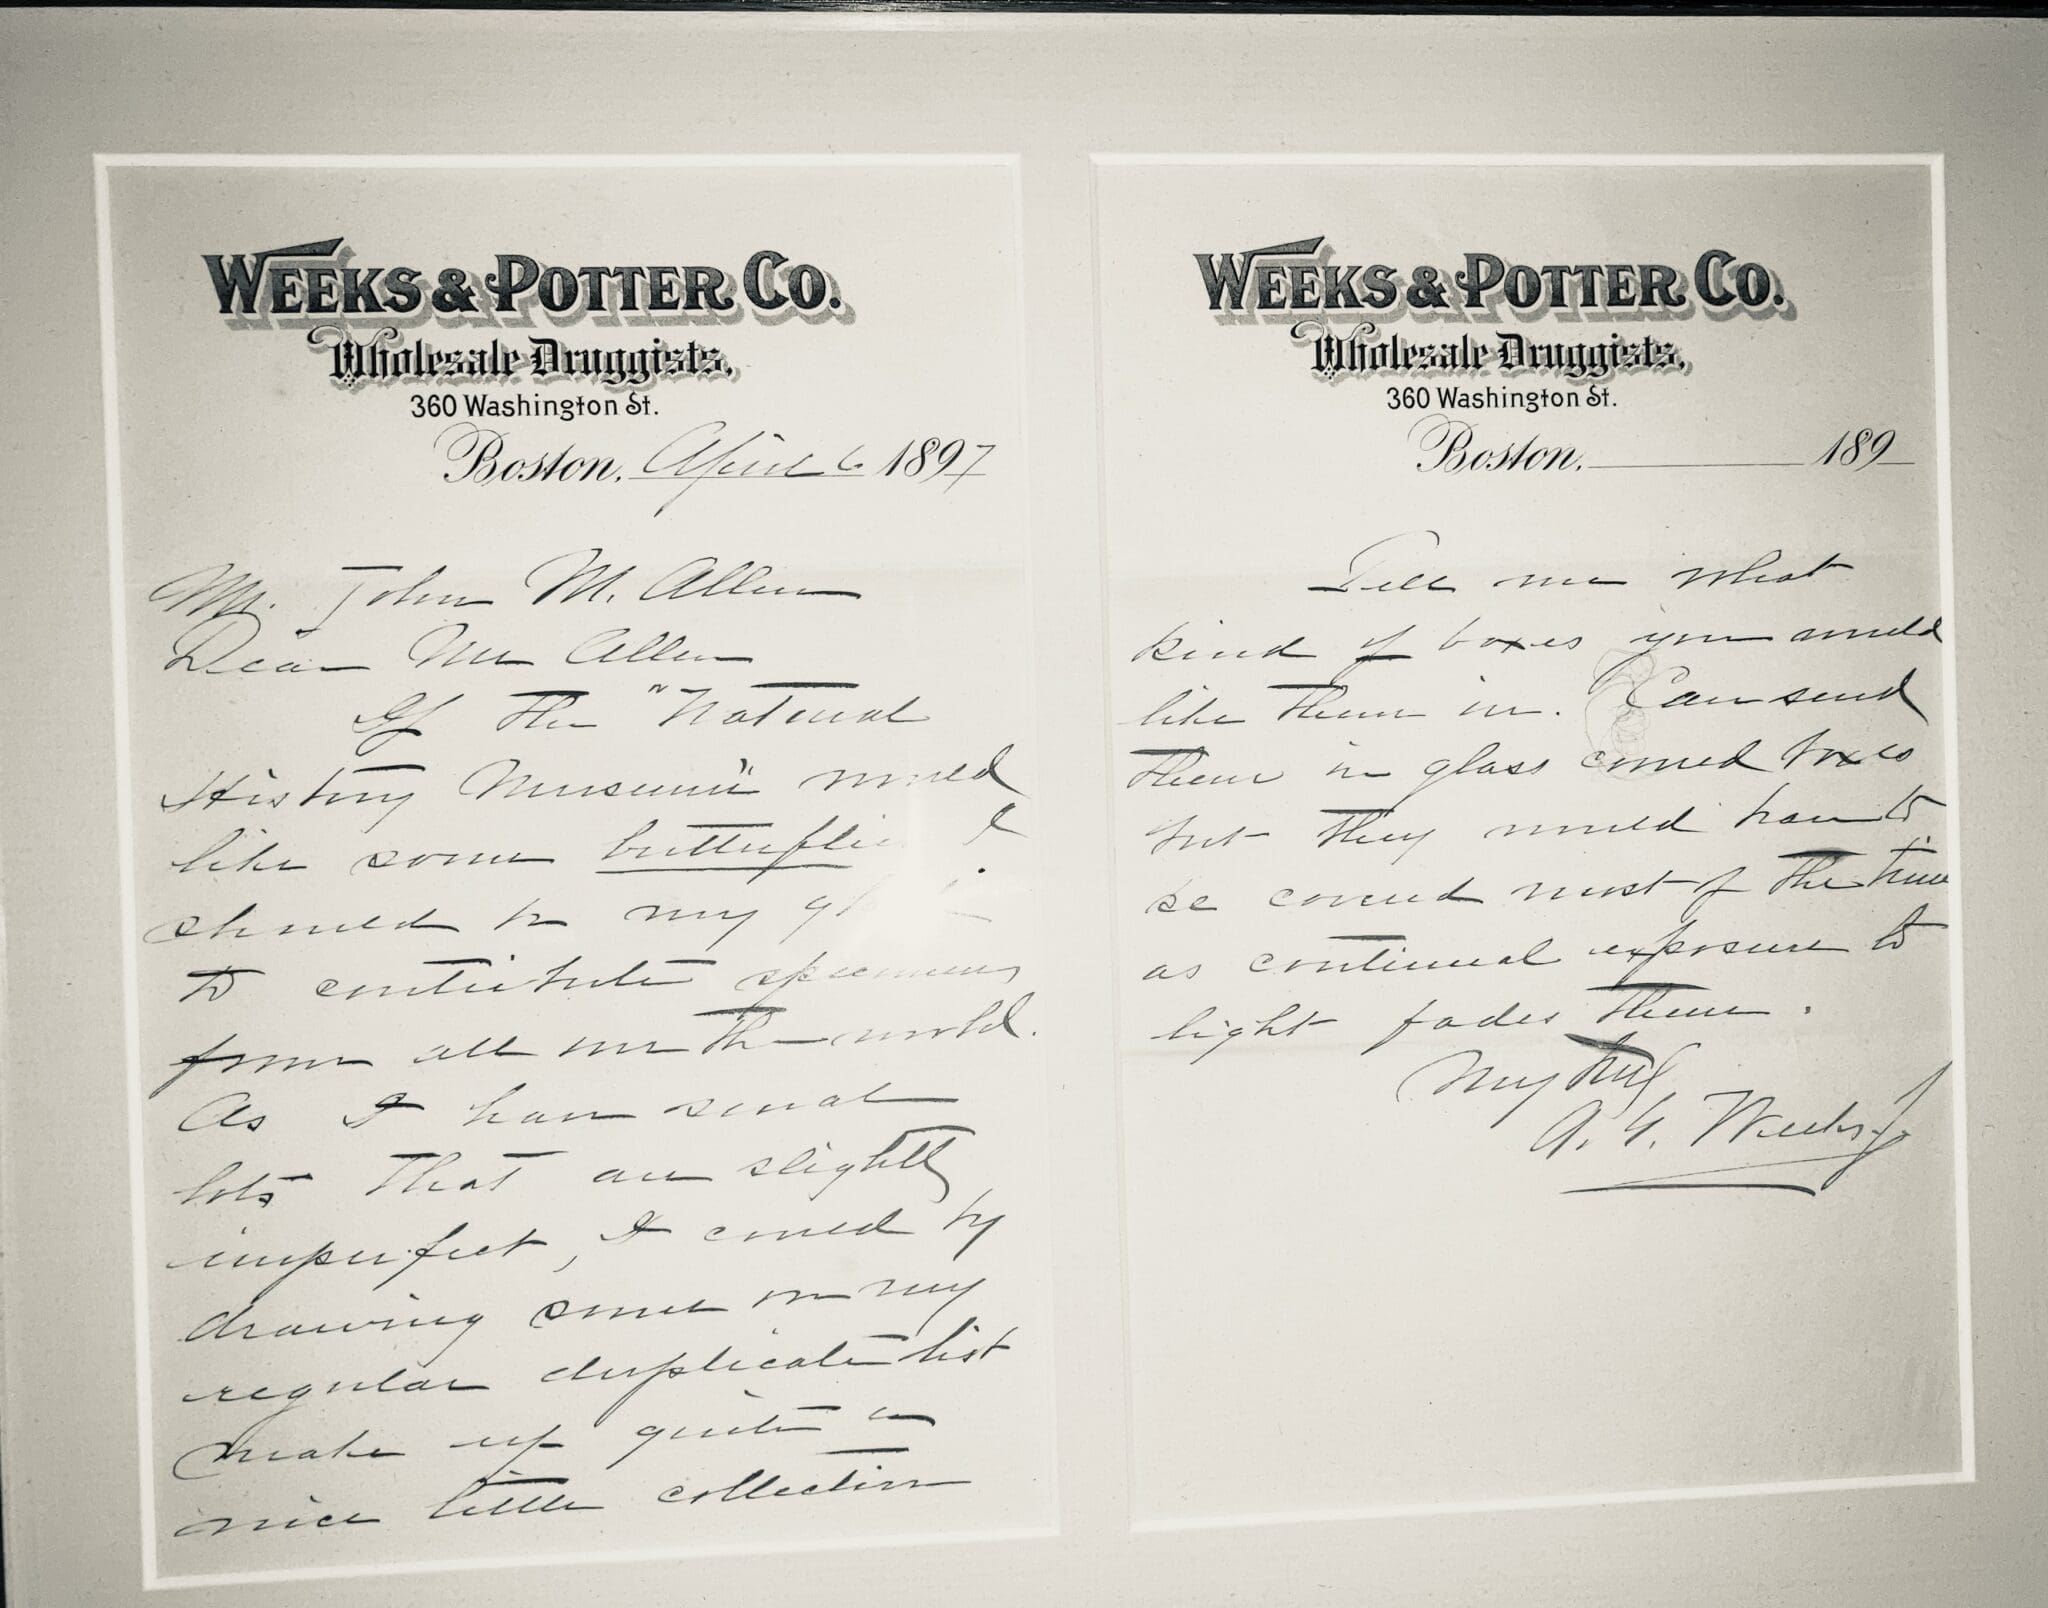 WEEKS & POTTER CO.
Wholesale Druggists,
360 Washington St.
Boston, April 6 1897
Mr. John M. Allen
Dear Mr Allen
If the "Natural
History Museum" would
like some butterflies I
should be very glad
to contribute specimens
from all over the world.
As I have several
lots that are slightly
imperfect, I could by
drawing some on my
regular duplicate list
make up quite a
nice little collection
WEEKS & POTTER CO.
Wholesale Druggists,
360 Washington St.
Boston, 189
Tell me what
kind of boxes you would
like them in. Can send
them in glass covered boxes
but they would have to
be covered most of the time
as continual exposure to
light fades them.
A. G. Weeks Jr